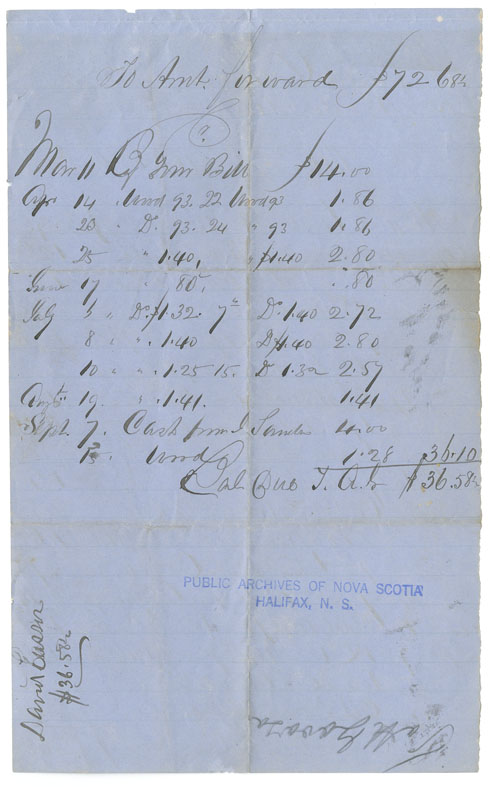 To Amt. forward $72.68½
Mar 11 By your Bill $14.00
Apr 14 Wood 93. 22 Wood 93 1.86
23 Do. 93. 24 " 93 1.86
25 " 1.40, " $1.40 2.80
June 17 " 80, .80
July 5 " Do. $1.32. 7th Do. 1.40 2.72
8 " " 1.40 Do $1.40 2.80
10 " " 1.25 15. Do 1.32 2.57
Augt. 19. " 1.41. 1.41
Sept 7. Cash from 4.00
15 Wood 1.28 36.10
Bal Due $36.58½
PUBLIC ARCHIVES OF NOVA SCOTIA
HALIFAX, N. S.
David
$36.58½